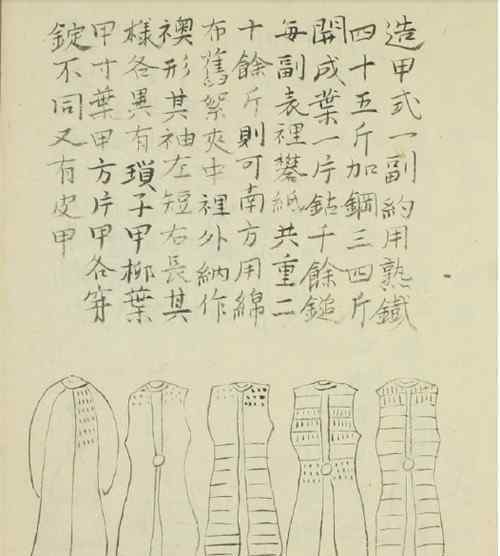 造甲式一副約用熟鐵
四十五斤加鋼三四斤
開成葉一片鉆千餘鎚
每副表裡共重二
十餘斤則可南方用綿
布舊絮夾中裡外納作
襖形其袖左短右長其
樣各異有瑣子甲柳葉
甲寸葉甲方片甲各穿
錠不同又有皮甲